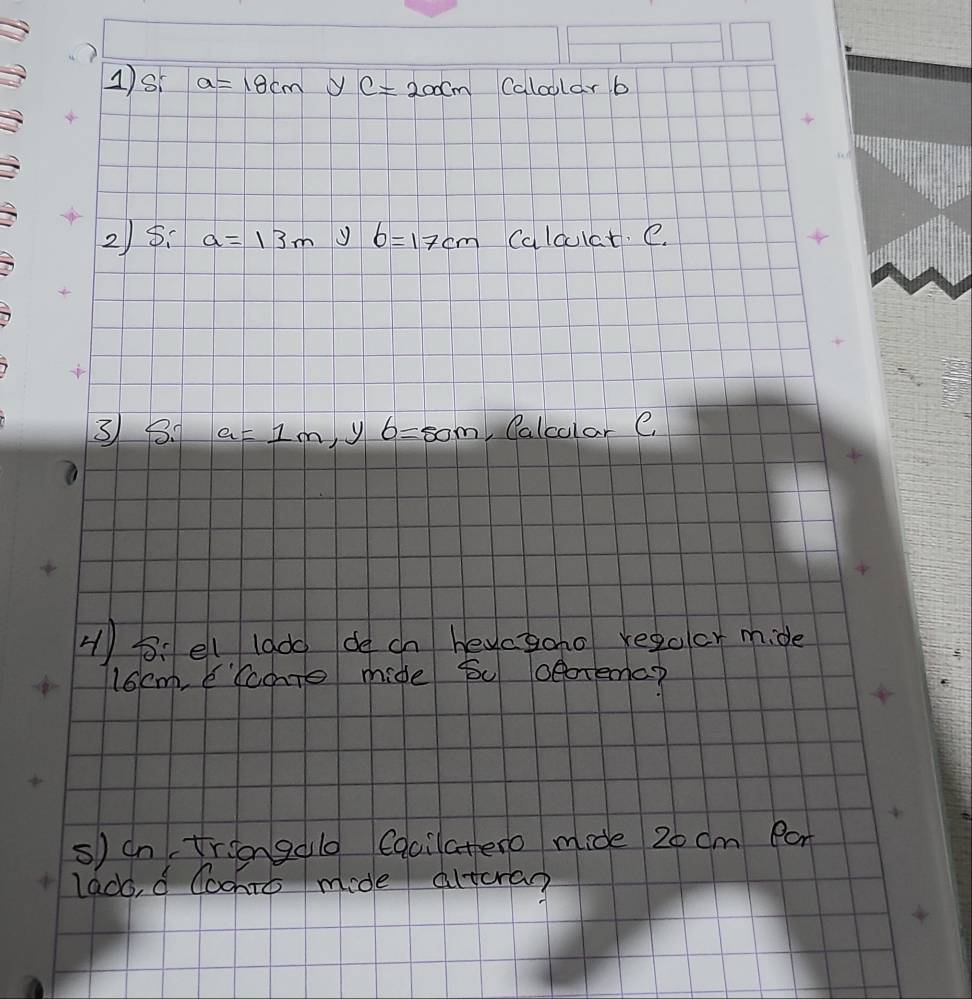 1) Si a=18cm y C=200cm Calcular b
2) Si a=13m y b=17cm Calcular C.
3) Si a=1m, y b=50m, Calcular C.
4) Si el lado de un hexagono regular mide
16cm, ¿Cuanto mide Su apotema?
5) un triangulo Equilatero mide 20 cm Por
lado, ¿Cuanto mide altura?